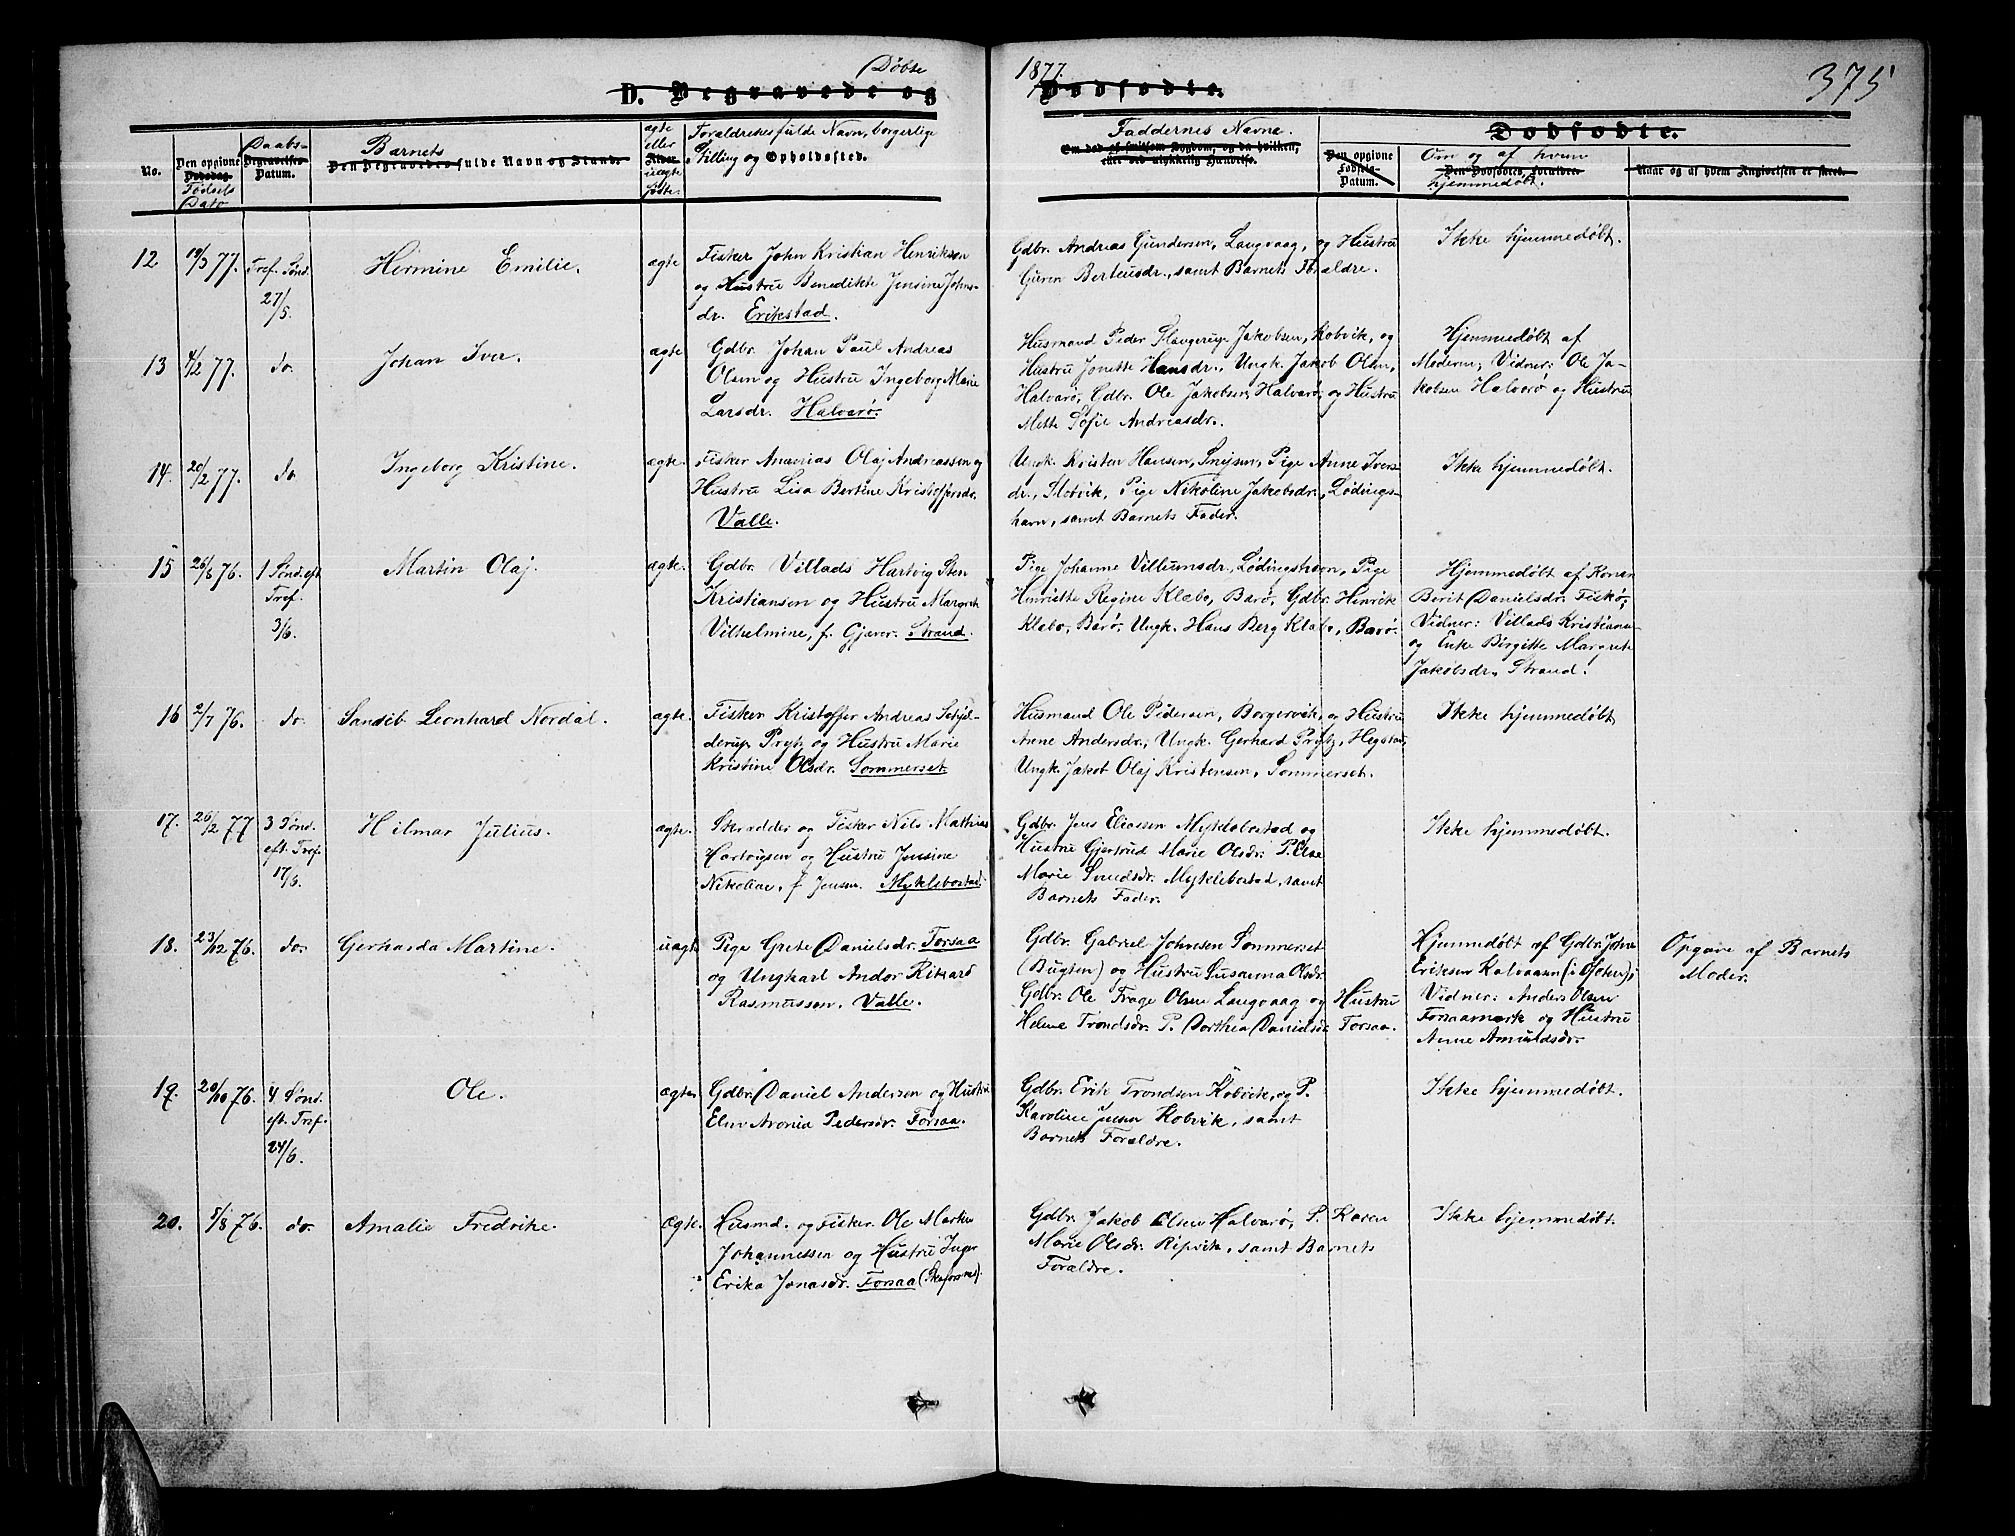 Døbte 1877.
D. Begravede og Dødfødte.
375
No.
Den opgivne Dødsdag
Fødsels Dato
Daabs-
Begravelses Datum.
Barnets
Den Begravedes fulde Navn og Stand.
ægte eller uægte født.
Alder
Forældrenes fulde Navn, borgerlige
Stilling og Opholdssted.
Faddernes Navne.
Om død af smitsom Sygdom, og da hvilken,
eller ved ulykkelig Hændelse.
Dødfødte.
Den opgivne Fødsels-Datum.
Om og af hvem
Den Dødfødtes Forældre.
hjemmedøbt.
Naar og af hvem Angivelsen er skeet.
12
19/3 77.
Tref. Sønd.
27/5.
Hermine Emilie.
ægte
Fisker John Kristian Henriksen
og Hustru Benedikte Jensine Johns-
dr. Erikstad.
Gdbr. Andreas Gundersen, Langvaag, og Hustru
Guren Berteusdr., samt Barnets Forældre.
Ikke hjemmedøbt.
13
4/2 77.
do.
Johan Iver.
ægte
Gdbr. Johan Paul Andreas
Olsen og Hustru Ingeborg Marie
Larsdr. Halvarø.
Husmand Peder Slangerup Jakobsen, Kobvik, og
Hustru Jonette Hansdr., Ungk. Jakob Olsen,
Halvarø, Gdbr. Ole Jakobsen, Halvarø, og Hustru
Mette Sofie Andreasdr.
Hjemmedøbt af
Moderen; Vidner: Ole Ja-
kobsen Halvarø og Hustru
14.
20/2 77.
do
Ingeborg Kristine.
ægte.
Fisker Ananias Olaj Andreassen og
Hustru Lisa Bertine Kristoffersdr.
Valle.
Ungk. Kristen Hansen, Snejsen, Pige Anne Ivers-
dr., Slotvik, Pige Nikoline Jakobsdr., Lødings-
havn, samt Barnets Fader.
Ikke hjemmedøbt.
15
26/8 76.
1 Sønd. eft.
Tref.
3/6.
Martin Olaj.
ægte.
Gdbr. Villads Hartvig Sten
Kristiansen og Hustru Margreth
Vilhelmine, f. Gjæver. Strand.
Pige Johanne Villumsdr., Lødingshavn, Pige
Henriette Regine Klæbo, Barø, Gdbr. Henrik
Klæbo, Barø. Ungk. Hans Berg Klæbo, Barø.
Hjemmedøbt af Konen
Berit Danielsdr. Fiskø;
Vidner: Villads Kristiansen
og Enke Birgitte Margrete
Jakobsdr., Strand.
16
2/7 76.
do.
Sandib Leonhard Nordal.
ægte.
Fisker Kristoffer Andreas Schjel-
derup Prytz og Hustru Marie
Kristine Olsdr. Sommerset
Husmand Ole Pedersen, Borgervik, og Hustru
Anne Andersdr., Ungk. Gerhard Prytz, Hegstad,
Ungk. Jakob Olaj Kristensen, Sommerset.
Ikke hjemmedøbt
17.
26/2 77
3 Sønd.
eft. Tref.
17/6.
Hilmar Julius.
ægte.
Skrædder og Fisker Nils Mathias
Hartvigsen og Hustru Jensine
Nikoline, f. Jensen. Myklebostad.
Gdbr. Jens Eliassen Myklebostad og
Hustru Gjertrud Marie Olsdr. P. Else
Marie Smedsdr. Myklebostad, samt
Barnets Fader.
Ikke hjemmedøbt.
18.
23/12 76.
do.
Gerharda Martine.
uægte
Pige Grete Danielsdr. Forsaa
og Ungkarl Andor Rikard
Rasmussen, Valle.
Gdbr. Gabriel Johnsen Sommerset
(Bugten) og Hustru Susanna Olsdr.
Gdbr. Ole Trage Olsen Langvaag og Hustru
Helene Trondsdr. P. Dorthea Danielsdr. Forsaa.
Hjemmedøbt af Gdbr. John
Eriksen Kalvaann (i Ofoten);
Vidner: Anders Olsen
Forsaamark og Hustru
Anne Amundsdr.
Opgave af Barnets
Moder.
19.
20/10 76.
4 Sønd.
eft. Tref.
24/6.
Ole.
ægte.
Gdbr. Daniel Andersen og Hustru
Elen Aronia Pedersdr. Forsaa.
Gdbr. Erik Trondsen Kobvik, og P.
Karoline Jensen Kobvik, samt
Barnets Forældre.
Ikke hjemmedøbt.
20.
5/8 76.
do.
Amalie Fredrike.
Ægte.
Husmd. og Fisker Ole Marten
Johannessen og Hustru Inger
Erika Jonasdr. Forsaa
Gdbr. Jakob Olsen Halvarø, P. Karen
Marie Olsdr. Ripvik, samt Barnets
Forældre.
Ikke hjemmedøbt.